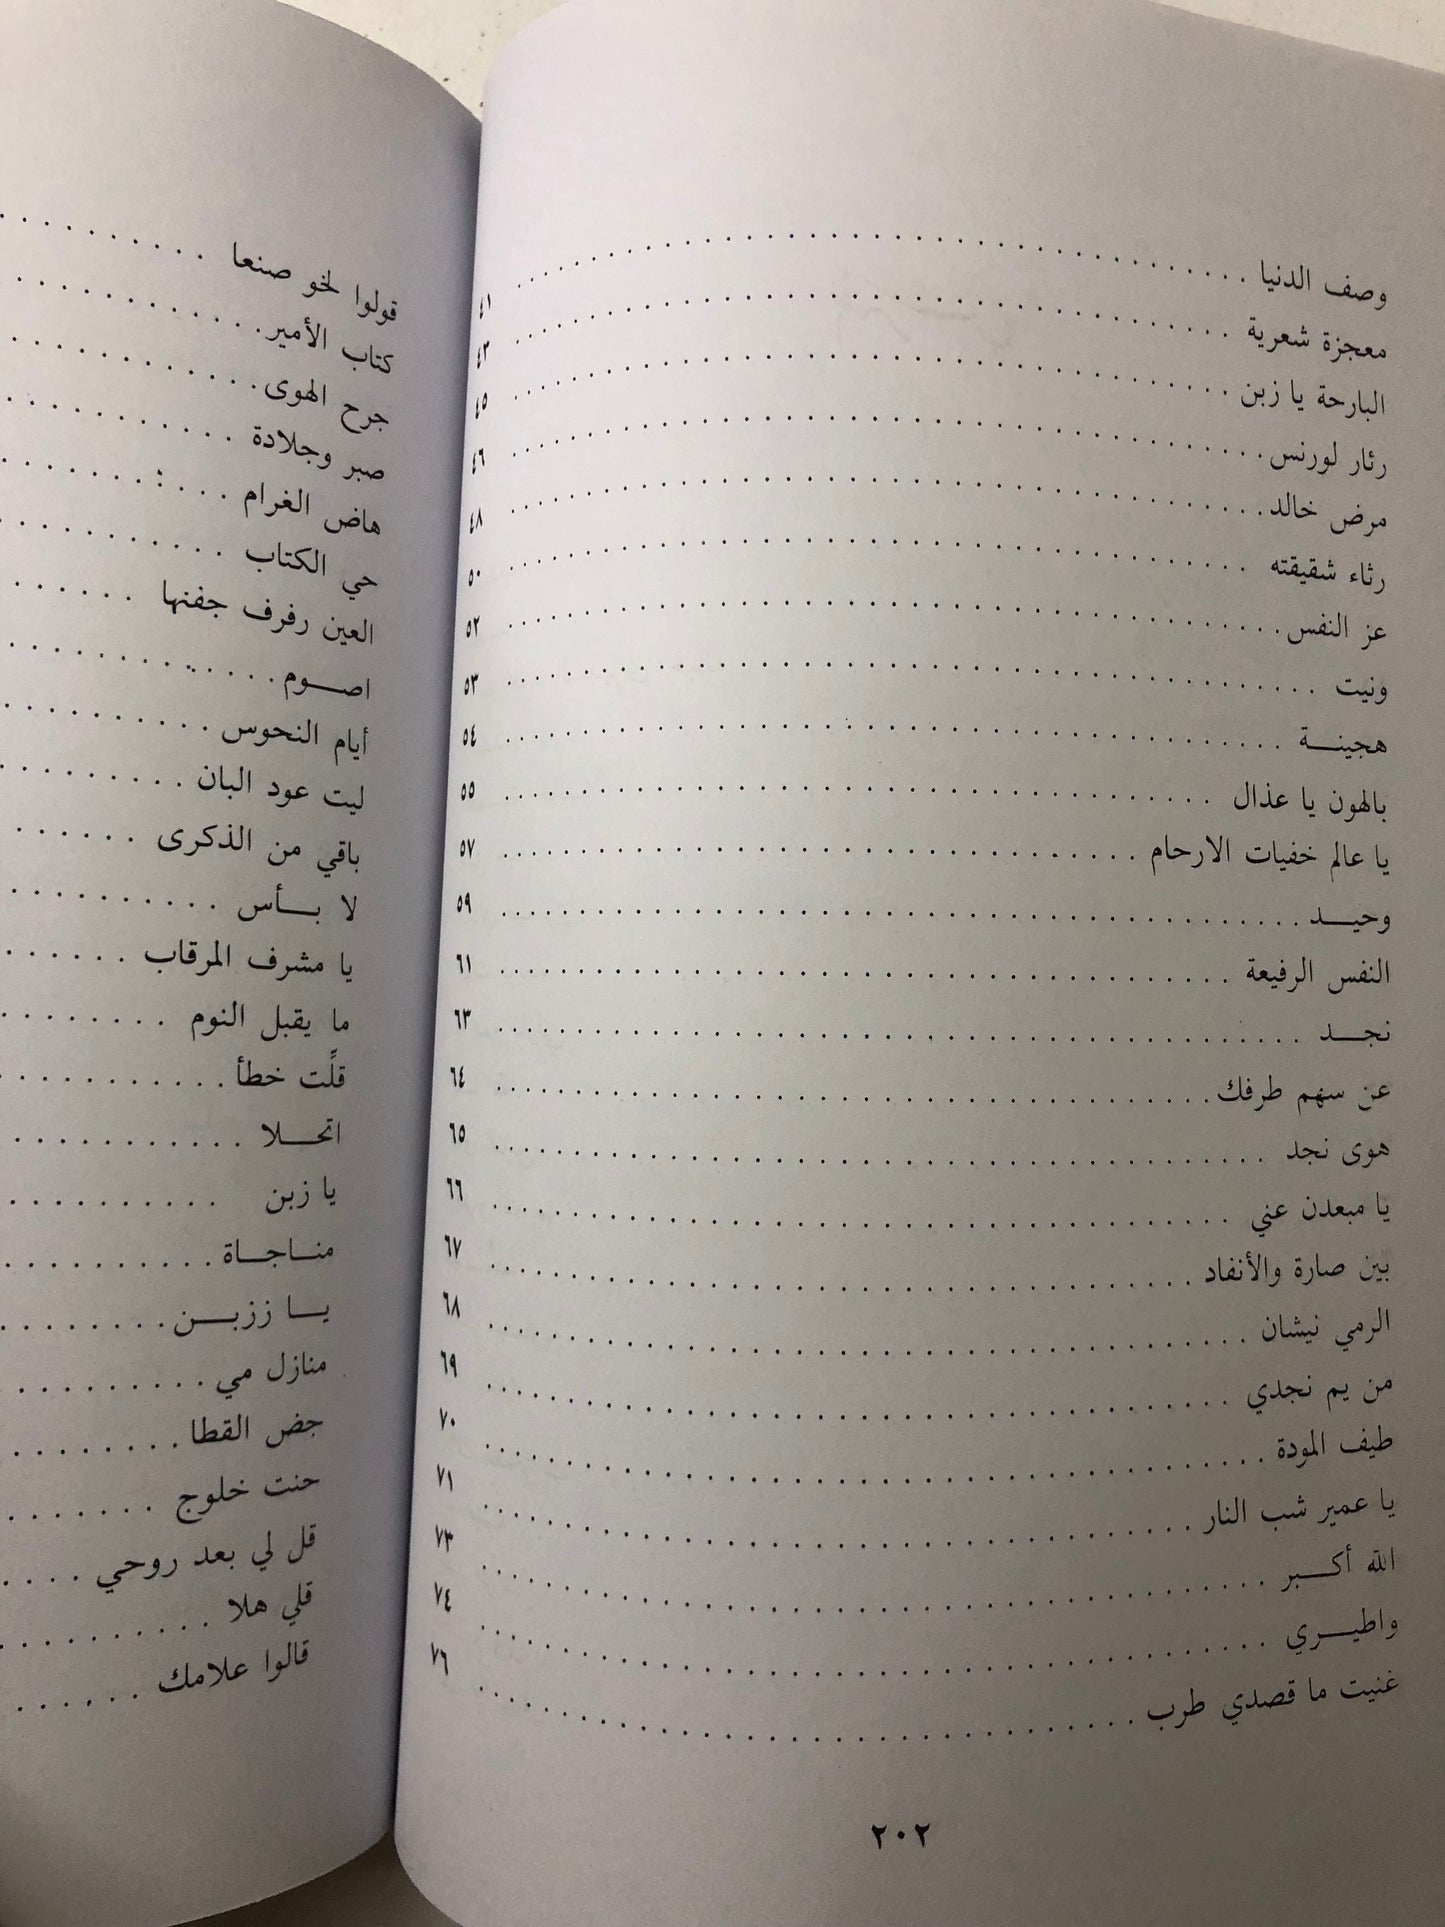 وصف الدنيا ................ ٤١
معجزة شعرية ................ ٤٣
البارحة يا زبن ................ ٤٥
رثار لورنس ................ ٤٦
مرض خالد ................ ٤٨
رثاء شقيقته ................ ٥٠
عز النفس ................ ٥٢
ونيت ................ ٥٣
هجينــة ................ ٥٤
بالهون يا عذال ................ ٥٥
يا عالم خفيات الارحام ................ ٥٧
وحيــد ................ ٥٩
النفس الرفيعة ................ ٦١
نجــد ................ ٦٣
عن سهم طرفك ................ ٦٤
هوى نجد ................ ٦٥
يا مبعدن عني ................ ٦٦
بين صارة والأنفاد ................ ٦٧
الرمي نيشان ................ ٦٨
من يم نجدي ................ ٦٩
طيف المودة ................ ٧٠
يا عمير شب النار ................ ٧١
الله أكــبر ................ ٧٣
واطيــري ................ ٧٤
غنيت ما قصدي طرب ................ ٧٦
٢٠٢
قولوا لخو صنعا ................
كتاب الأمير ................
جرح الهوى ................
صبر وجلادة ................
هاض الغرام ................
حي الكتاب ................
العين رفرف جفنها ................
اصــوم ................
أيام النحوس ................
ليت عود البان ................
باقي من الذكرى ................
لا بــأس ................
يا مشرف المرقاب ................
ما يقبل النوم ................
قلَّت خطأ ................
اتحــلا ................
يا زبن ................
منــاجــاة ................
يــا ززبــن ................
منازل مي ................
جض القطا ................
حنت خلوج ................
قل لي بعد روحي ................
قلي هلا ................
قالوا علامك ................